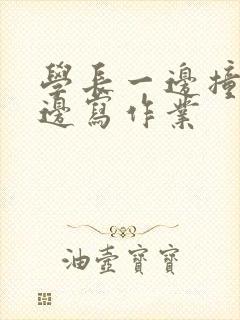 學長一邊撞
邊寫作業
油壺寶寶